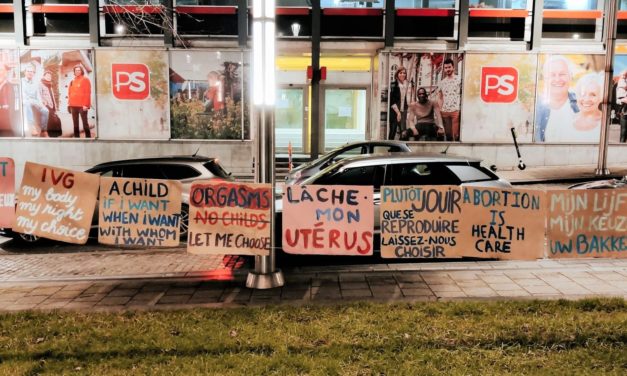 PS
PS
IVG
my body
my right
my choice
A CHILD
if i WANT
WHEN i WANT
WiTH WHOM
i WANT
ORGASMS
NO CHILDS
LET ME CHOOSE
LÂCHE
MON
UTÉRUS
PLUTÔT JOUIR
QUE SE
REPRODUIRE
LAISSEZ-NOUS
CHOISIR
ABORTION
IS
HEALTH
CARE
MiJN LiJF
MiJN KEUZ
UW BAKKE